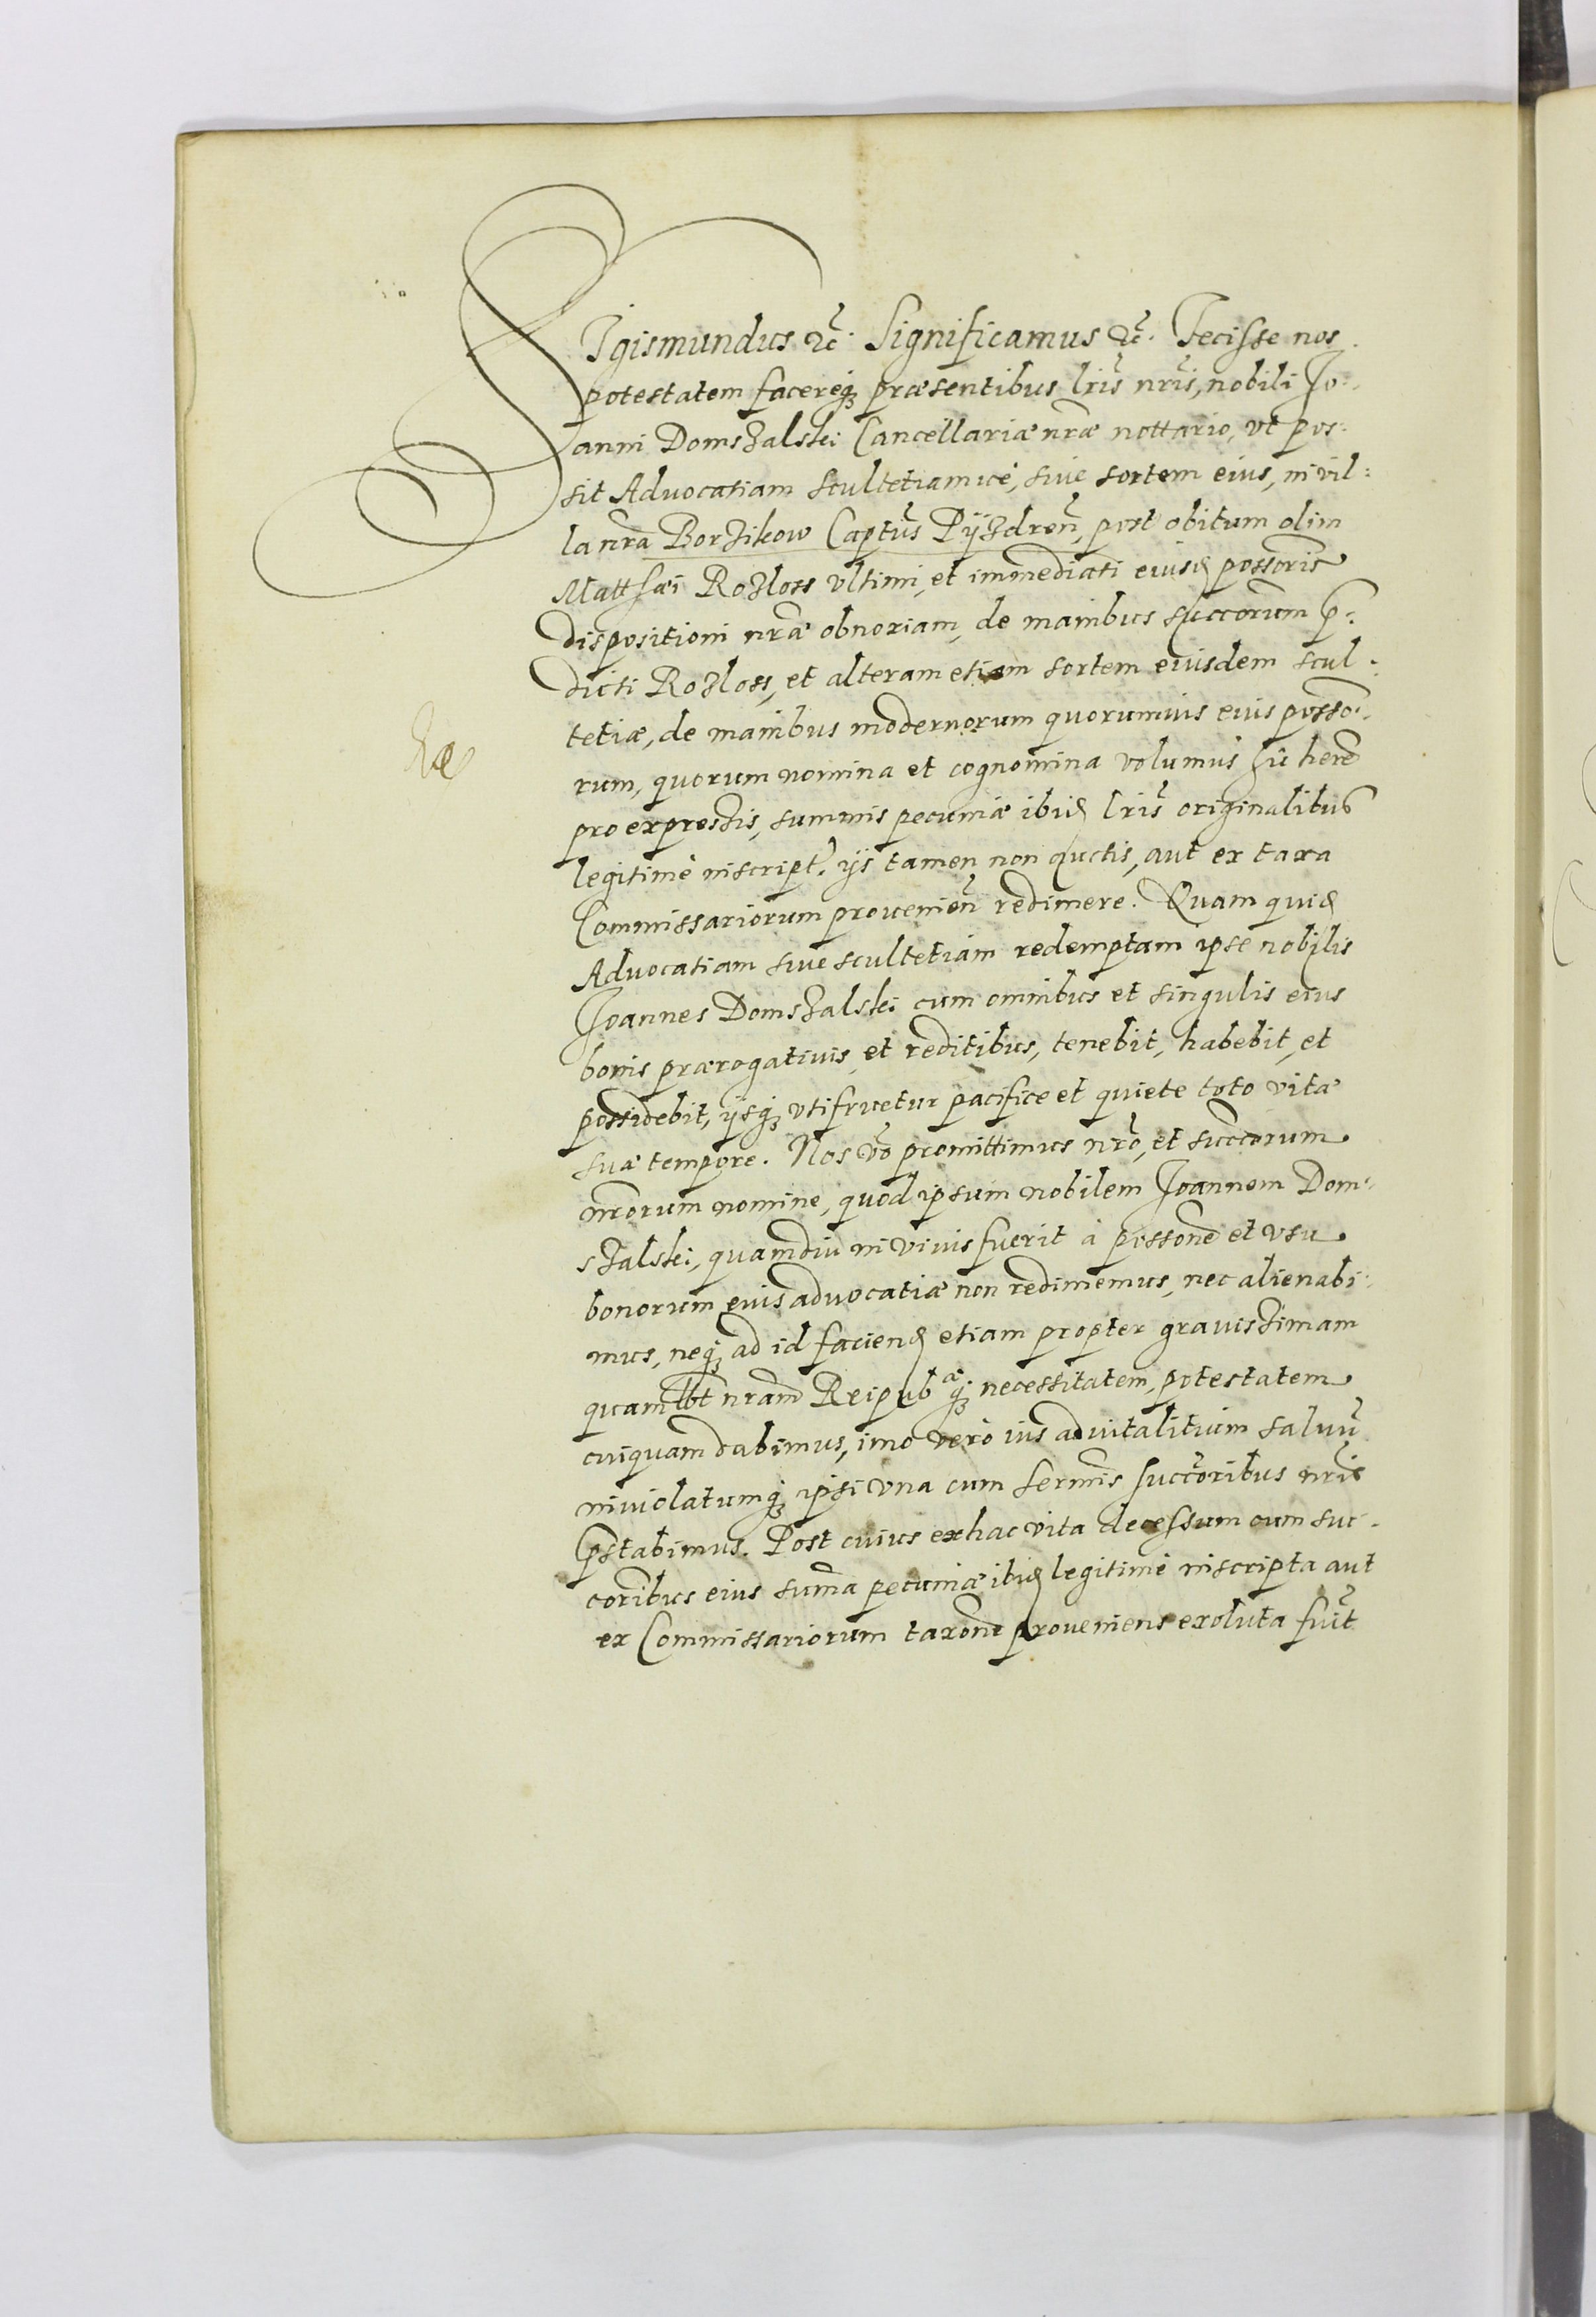 SIgismundus &c̃. Significamus &c̃. Fecisse nos
potestatem facereq; præsentibus lr̃is nr̃is, nobili Jo:
anni Domszalski Cancellariæ nr̃æ nottario, vt pos:
sit Aduocatiam scultetiamue, siue sortem eius, in vil:
la nr̃a Borzikow Captũs Pÿzdreñ, post obitum olim
Matthæi Rozloss vltimi, et immediati eiusd possoris
dispositioni nr̃æ obnoxiam, de manibus succorum p̃:
dicti Rozloss, et alteram etiam sortem eiusdem scul:
tetiæ, de manibus modernorum quorumuis eius posso:
rum, quorum nomina et cognomina volumus hic here
pro expressis, summis pecuniæ ibid lr̃is originalibus
legitimè inscript. ijs tamen non auctis, aut ex taxa
Commissariorum prouenieñ redimere. Quam quid
Aduocatiam siue scultetiam redemptam ipse nobilis
Joannes Domszalski cum omnibus et singulis eius
bonis prærogatiuis, et reditibus, tenebit, habebit, et
possidebit, ijsq; vtifruetur pacifice et quiete toto vitæ
suæ tempore. Nos vo promittimus nr̃o, et succorum
nr̃orum nomine, quod ipsum nobilem Joannem Dom:
szalski, quamdiu in viuis fuerit à possone et vsu
bonorum eius aduocatiæ non redimemus, nec alienabi:
mus, neq; ad id faciend etiam propter grauissimam
quamlbt nram Reipub æq; necessitatem, potestatem
cuiquam dabimus, imo verò ius aduitalitium saluũ
inuiolatumq; ipsi vna cum sermis succoribus nris
p̃stabimus. Post cuius ex hac vita decessum cum suc:
coribus eius suma pecuniæ ibid legitimè inscripta aut
ex Commissariorum taxone proueniens exoluta fuit